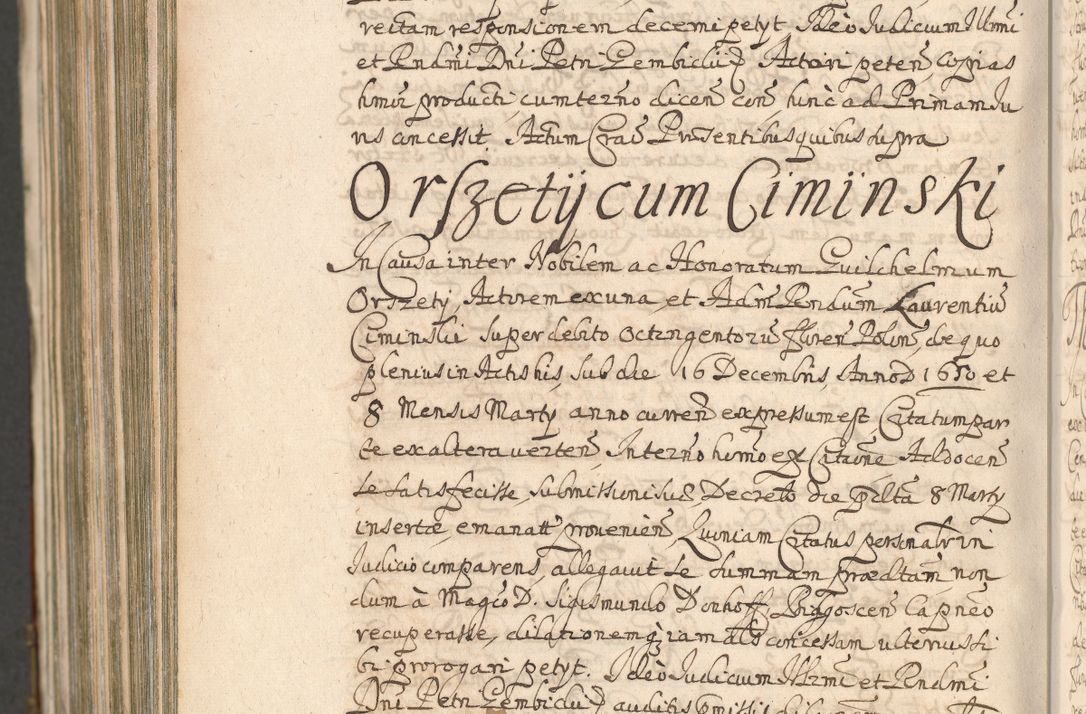 rectam responsionem decerni petyt. Ideo Judicium Illmi
et Rndmi Dni Petri Gembicki Actori peten copias
humoi producti cum terno dicen con hinc ad Primam Ju
ris concessit. Actum Crac Prsentibus quibus supra
Orszetij cum Ciminski
In Causa inter Nobilem ac Honoratum Guilchelmum
Orszetij Actorem ex una, et Adm Rendum Laurentiu
Ciminski super debito octingentoru floren Polon, de quo
plenius in Actis his, sub die 16 Decembris Anno D 1650 et
8 Mensis Marty anno curren expressum est, Citatum par
te ex altera verten, In terno humoi ex Citaone Ad docen
se satisfecisse submissioni suae, Decreto die pdta 8 Marty
insertae, emanatt provenien. Quoniam Citatus personalr in
Judicio comparens, allegavit se summam praedtam non
dum à Magco D. Sigismundo Donhoff, Capneo
recuperasse, dilationem qz iam als concessam ulterius si
bi prorogari petyt. Ideo Judicium Illrmi et Rndmi
Dni Petri Gembicki auditis